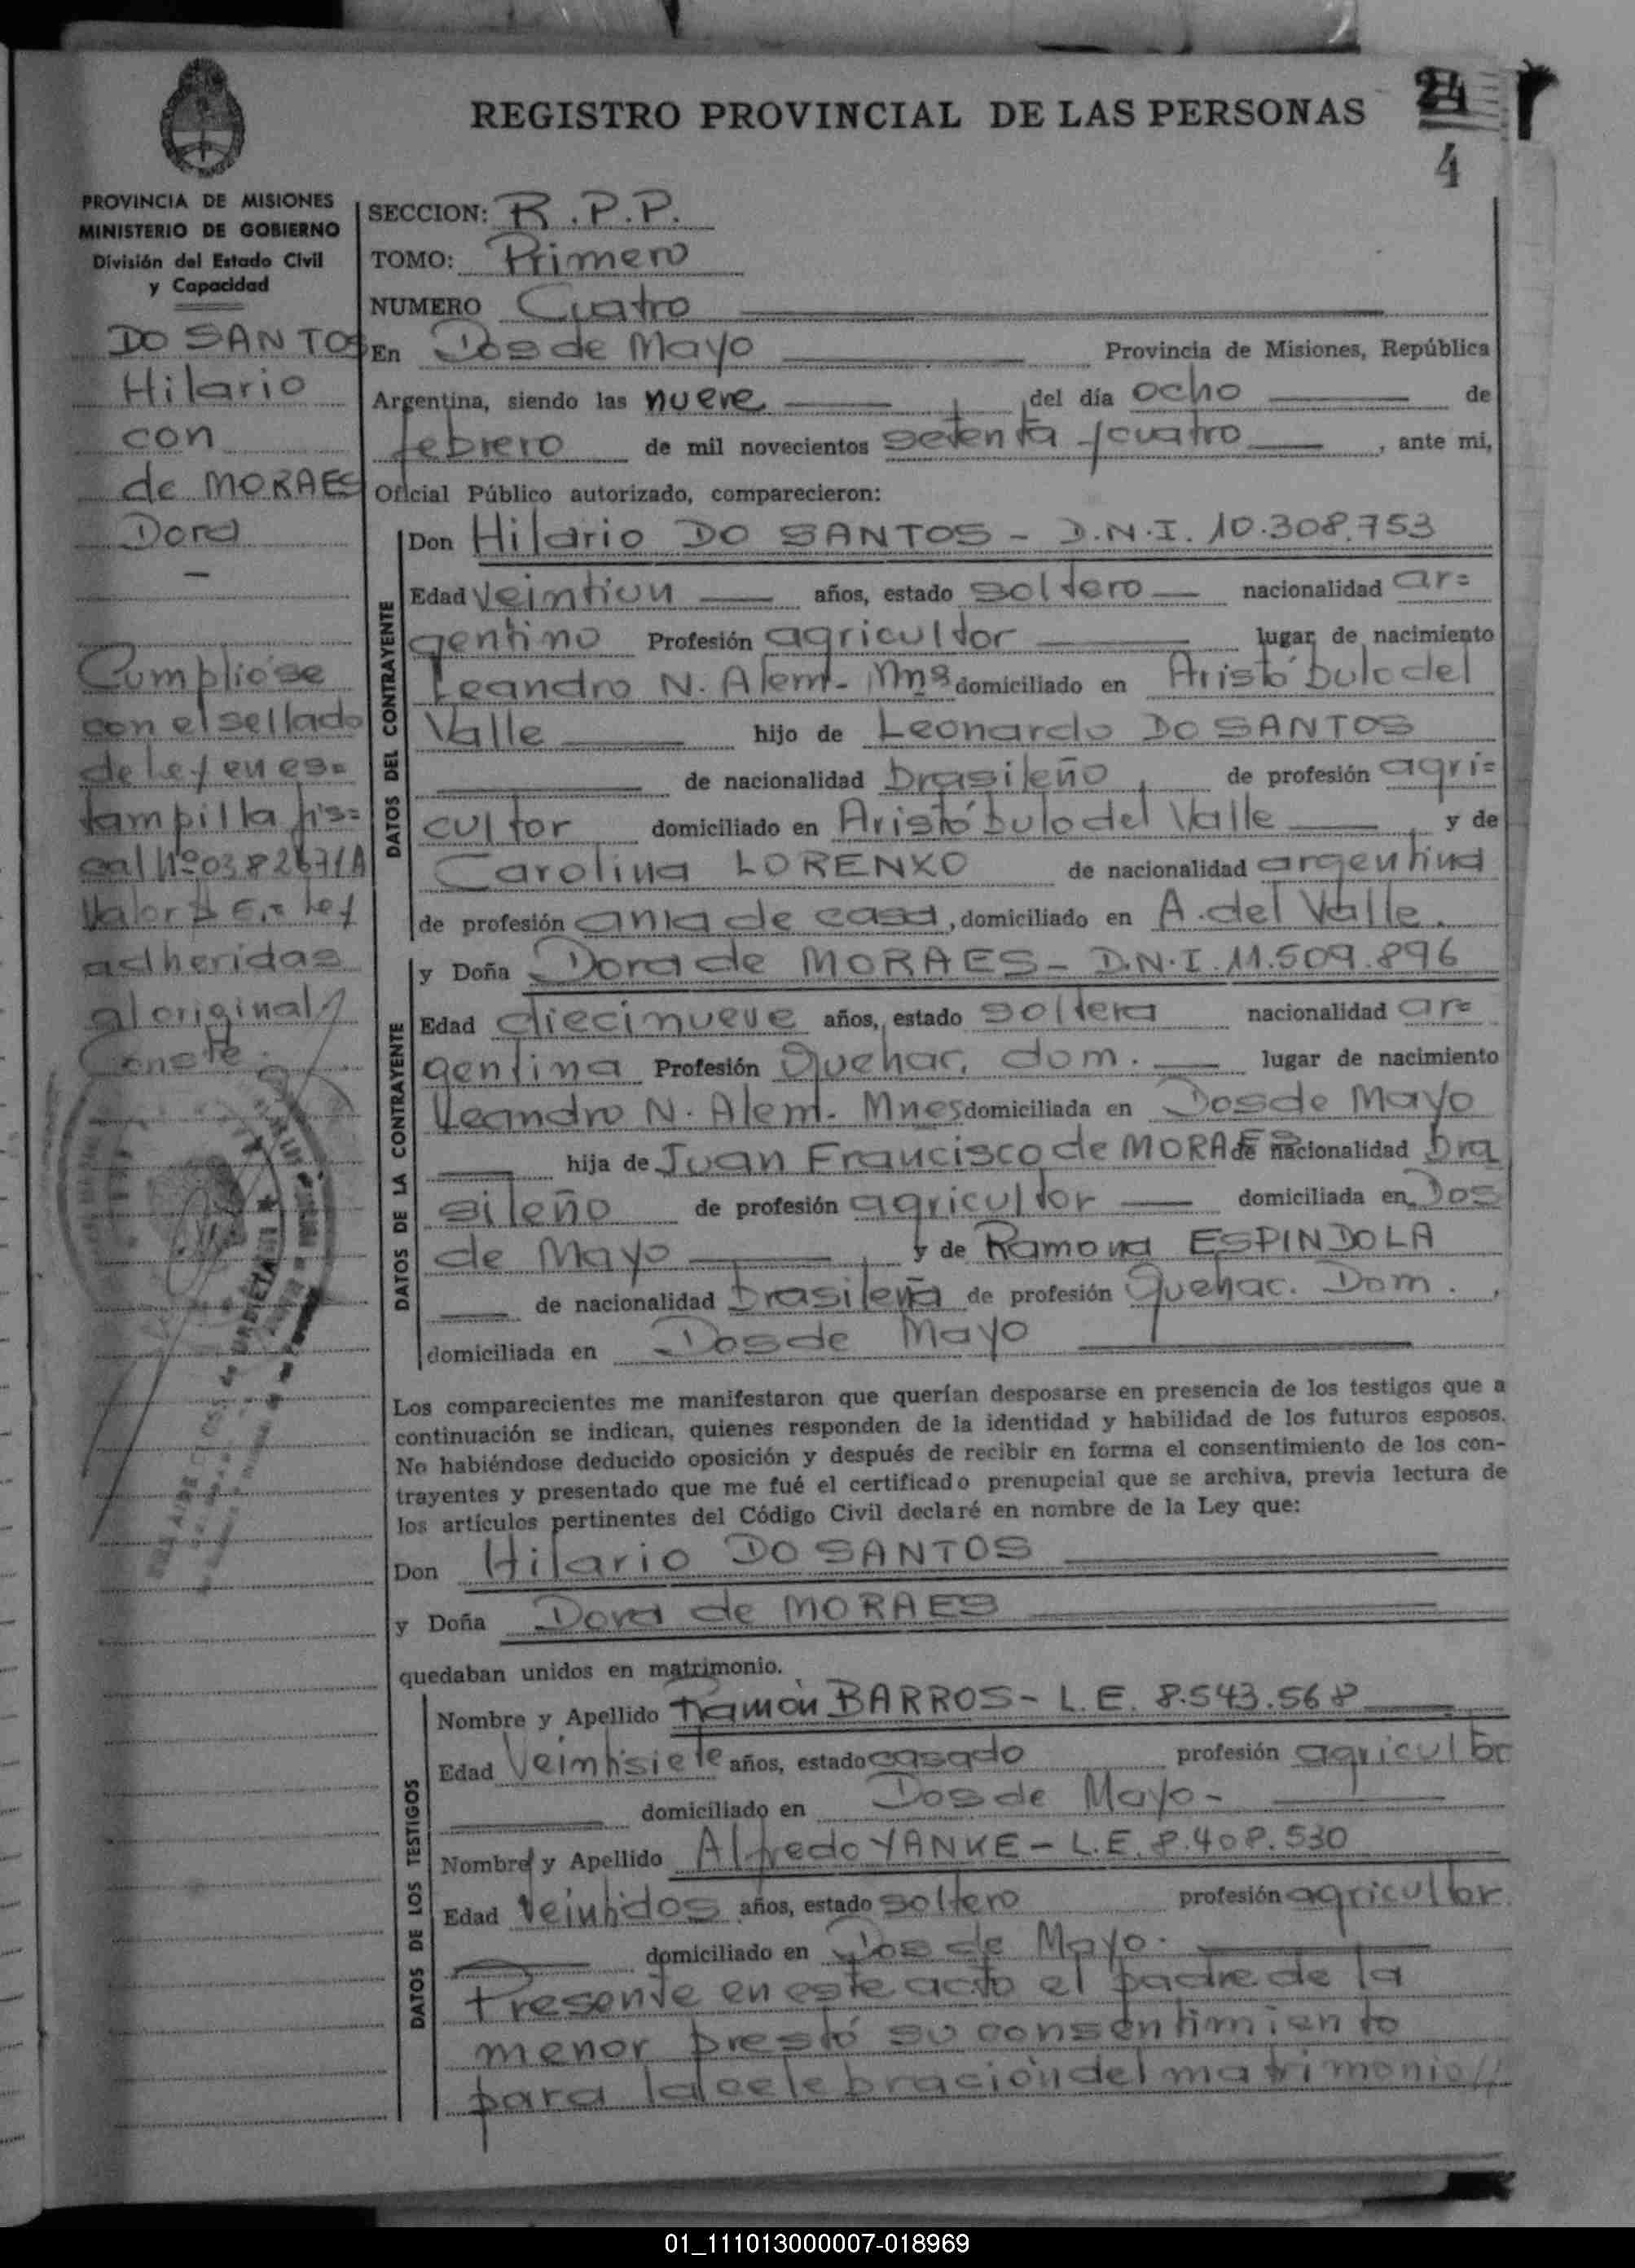 REGISTRO PROVINCIAL DE LAS PERSONAS
24
4
PROVINCIA DE MISIONES
MINISTERIO DE GOBIERNO
División del Estado Civil
y Capacidad
DO SANTOS
Hilario
con
de MORAES
Dora
Cumplióse
con el sellado
de ley en es=
tampilla fis=
cal Nº
Valor $ Ley
adheridas
al original
Conste.
SECCION: R.P.P.
TOMO: Primero
NUMERO Cuatro
En Dos de Mayo Provincia de Misiones, República
Argentina, siendo las nueve del día ocho de
febrero de mil novecientos setenta y cuatro, ante mi,
Oficial Público autorizado, comparecieron:
DATOS DEL CONTRAYENTE
Don Hilario DO SANTOS - D.N.I. 10.308.753
Edad veintiun años, estado soltero nacionalidad ar=
gentino Profesión agricultor lugar de nacimiento
Leandro N. Alem - Mns domiciliado en Aristóbulo del
Valle hijo de Leonardo DO SANTOS
de nacionalidad brasileño, de profesión agri=
cultor domiciliado en Aristóbulo del Valle, y de
Carolina LORENXO de nacionalidad argentina
de profesión ama de casa, domiciliado en A. del Valle.
DATOS DE LA CONTRAYENTE
y Doña Dora de MORAES - D.N.I. 11.509.896
Edad diecinueve años, estado soltera nacionalidad ar=
gentina Profesión Quehac. dom. lugar de nacimiento
Leandro N. Alem - Mnes domiciliada en Dos de Mayo
hija de Juan Francisco de MORAES de nacionalidad bra
sileño de profesión agricultor domiciliada en Dos
de Mayo, y de Ramona ESPINDOLA
de nacionalidad brasileña de profesión Quehac. Dom.,
domiciliada en Dos de Mayo
Los comparecientes me manifestaron que querían desposarse en presencia de los testigos que a
continuación se indican, quienes responden de la identidad y habilidad de los futuros esposos.
No habiéndose deducido oposición y después de recibir en forma el consentimiento de los con-
trayentes y presentado que me fué el certificado prenupcial que se archiva, previa lectura de
los artículos pertinentes del Código Civil declaré en nombre de la Ley que:
Don Hilario DO SANTOS
y Doña Dora de MORAES
quedaban unidos en matrimonio.
DATOS DE LOS TESTIGOS
Nombre y Apellido Ramón BARROS - L.E. 8.543.568
Edad Veintisiete años, estado casado profesión agricultor
domiciliado en Dos de Mayo -
Nombre y Apellido Alfredo YANKE - L.E. 8.408.530
Edad Veintidos años, estado soltero profesión agricultor
domiciliado en Dos de Mayo.
Presente en este acto el padre de la
menor prestó su consentimiento
para la celebración del matrimonio//
01_111013000007-018969